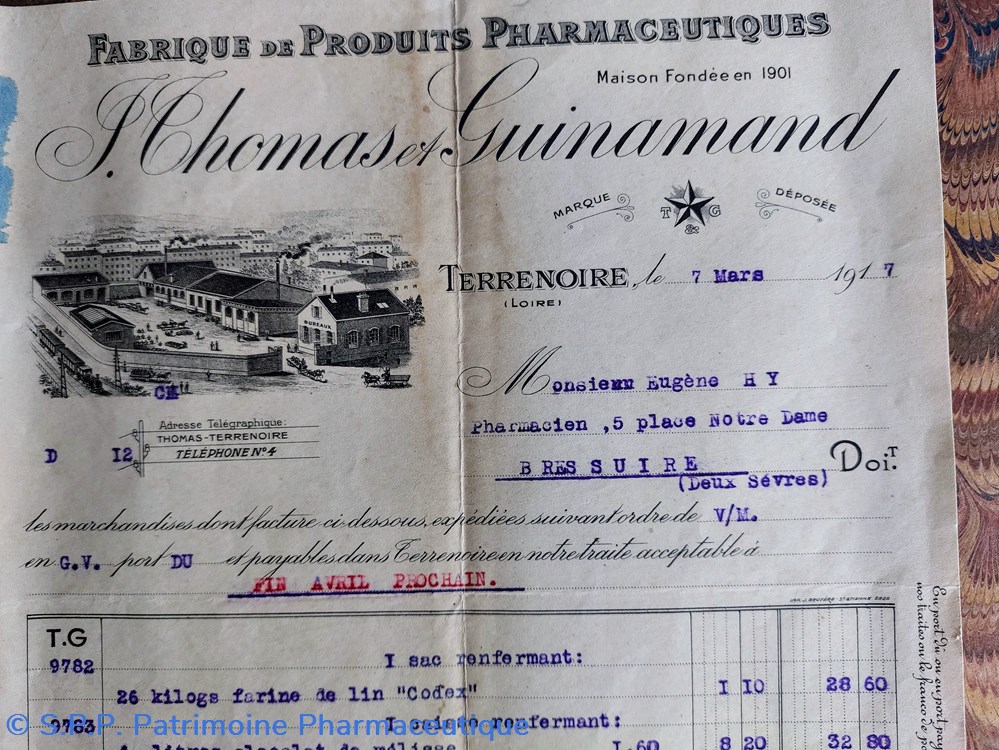 FABRIQUE DE PRODUITS PHARMACEUTIQUES
Maison Fondée en 1901
J. Thomas et Guinamand
MARQUE T & G DÉPOSÉE
TERRENOIRE, le 7 Mars 1917
(LOIRE)
BUREAUX
Monsieur Eugène H Y
Pharmacien ,5 place Notre Dame
BRESSUIRE
(Deux Sévres)
Doit.
Adresse Télégraphique:
THOMAS-TERRENOIRE
TÉLÉPHONE N° 4
D I2
les marchandises dont facture ci-dessous, expédiées suivant ordre de V/M.
en G.V. port DU et payables dans Terrenoire en notre traite acceptable à
FIN AVRIL PROCHAIN.
T.G
9782 I sac renfermant:
26 kilogs farine de lin "Codex" I 10 28 60
9783 I caisse renfermant:
4 litres alcoolat de mélisse I.60 8 20 32 80
En port dû ou en port payé
nos traites ou le franco de
© S.B.P. Patrimoine Pharmaceutique